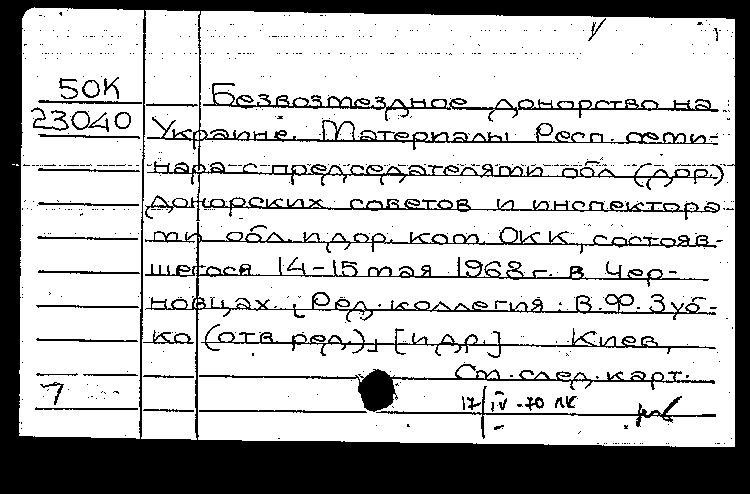 50К
23040
Безвозмездное донорство на
Украине. Материалы Респ. семи-
нара с председателями обл. (дор.)
донорских советов и инспектора-
ми обл. и дор. ком. ОКК, состояв-
шегося 14-15 мая 1968 г. в Чер-
новцах. [Ред. коллегия: В.Ф. Зуб-
ко (отв. ред.)] [и др.] Киев,
См. след. карт.
7
17/IV-70 ЛК